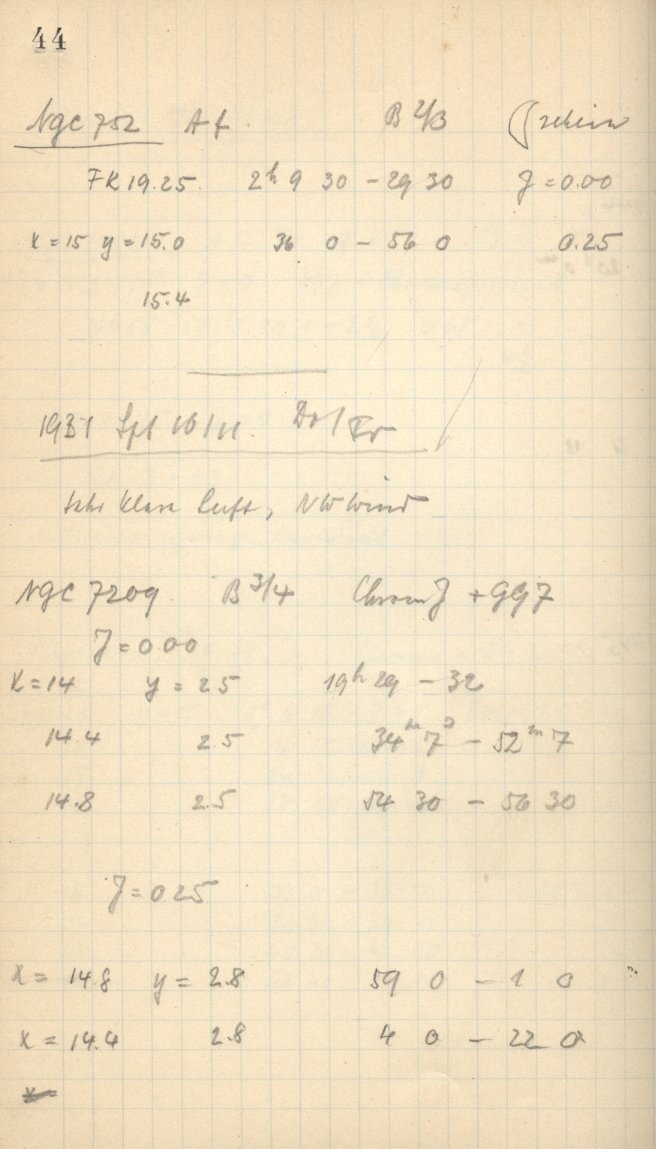 44
NGC 752 Af. B 2/3 ☾schein
FK 19.25. 2h 9 30 - 29 30 J = 0.00
x = 15 y = 15.0 36 0 - 56 0 0.25
15.4
1931 Spt 10/11.
Sehr klare Luft, NW Wind
NGC 7209 B 3/4 + GG7
J = 0.00
x = 14 y = 2.5 19h 29 - 32
14.4 2.5 34m 7s - 52m 7
14.8 2.5 54 30 - 56 30
J = 0.25
x = 14.8 y = 2.8 59 0 - 1 0
x = 14.4 2.8 4 0 - 22 0